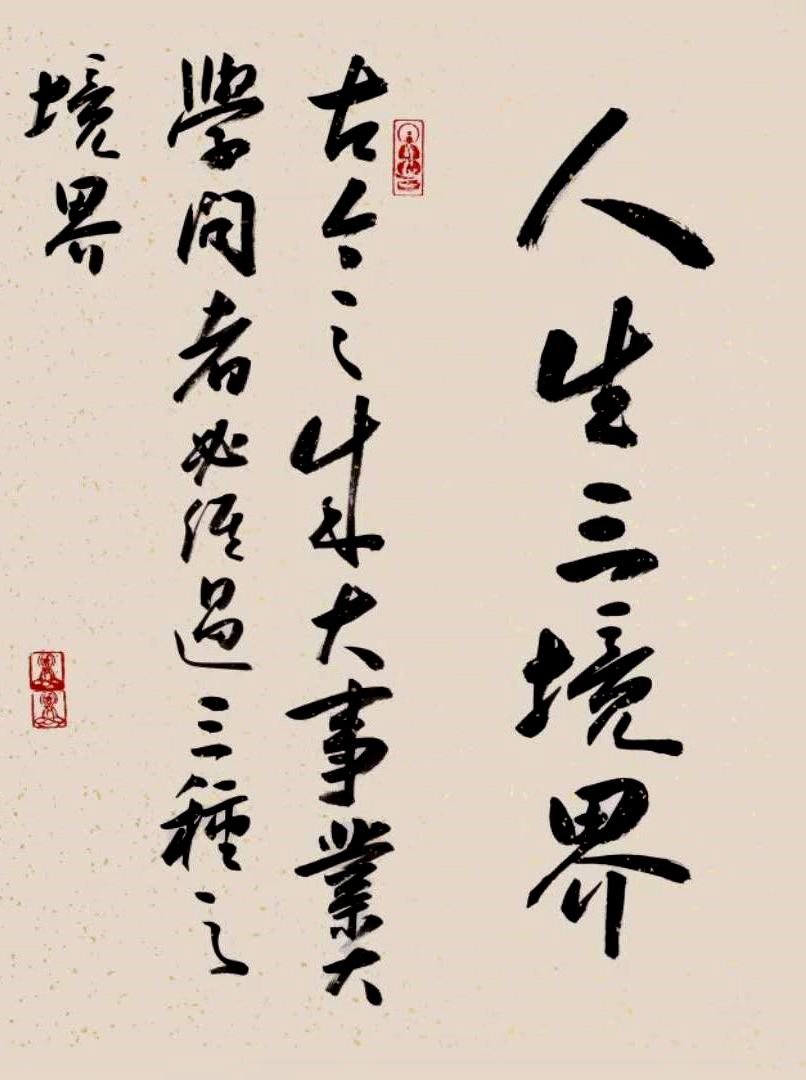 人生三境界
古今之成大事業大
學問者必經過三種之
境界